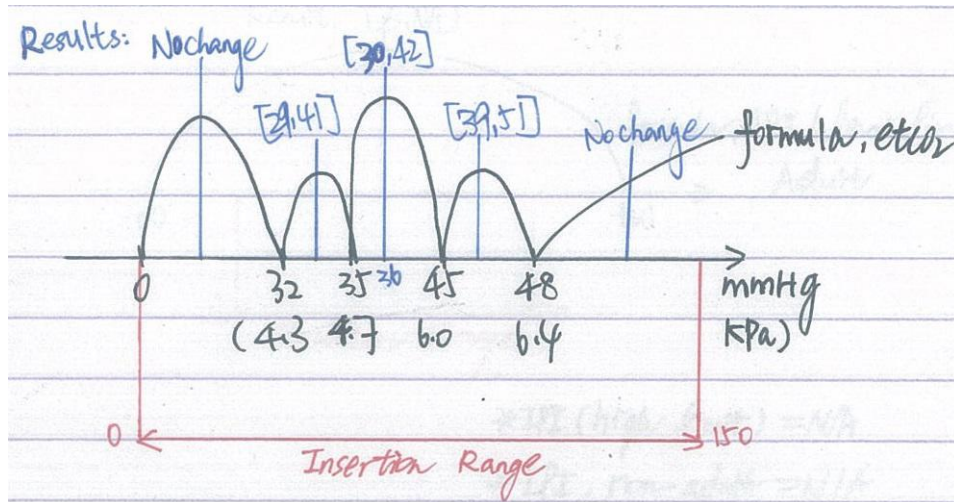 Results: No change [30,42]
[29,41] [39,51] No change formula, etco2
0 32 35 36 45 48 mmHg
(4.3 4.7 6.0 6.4 KPa)
0 150
Insertion Range